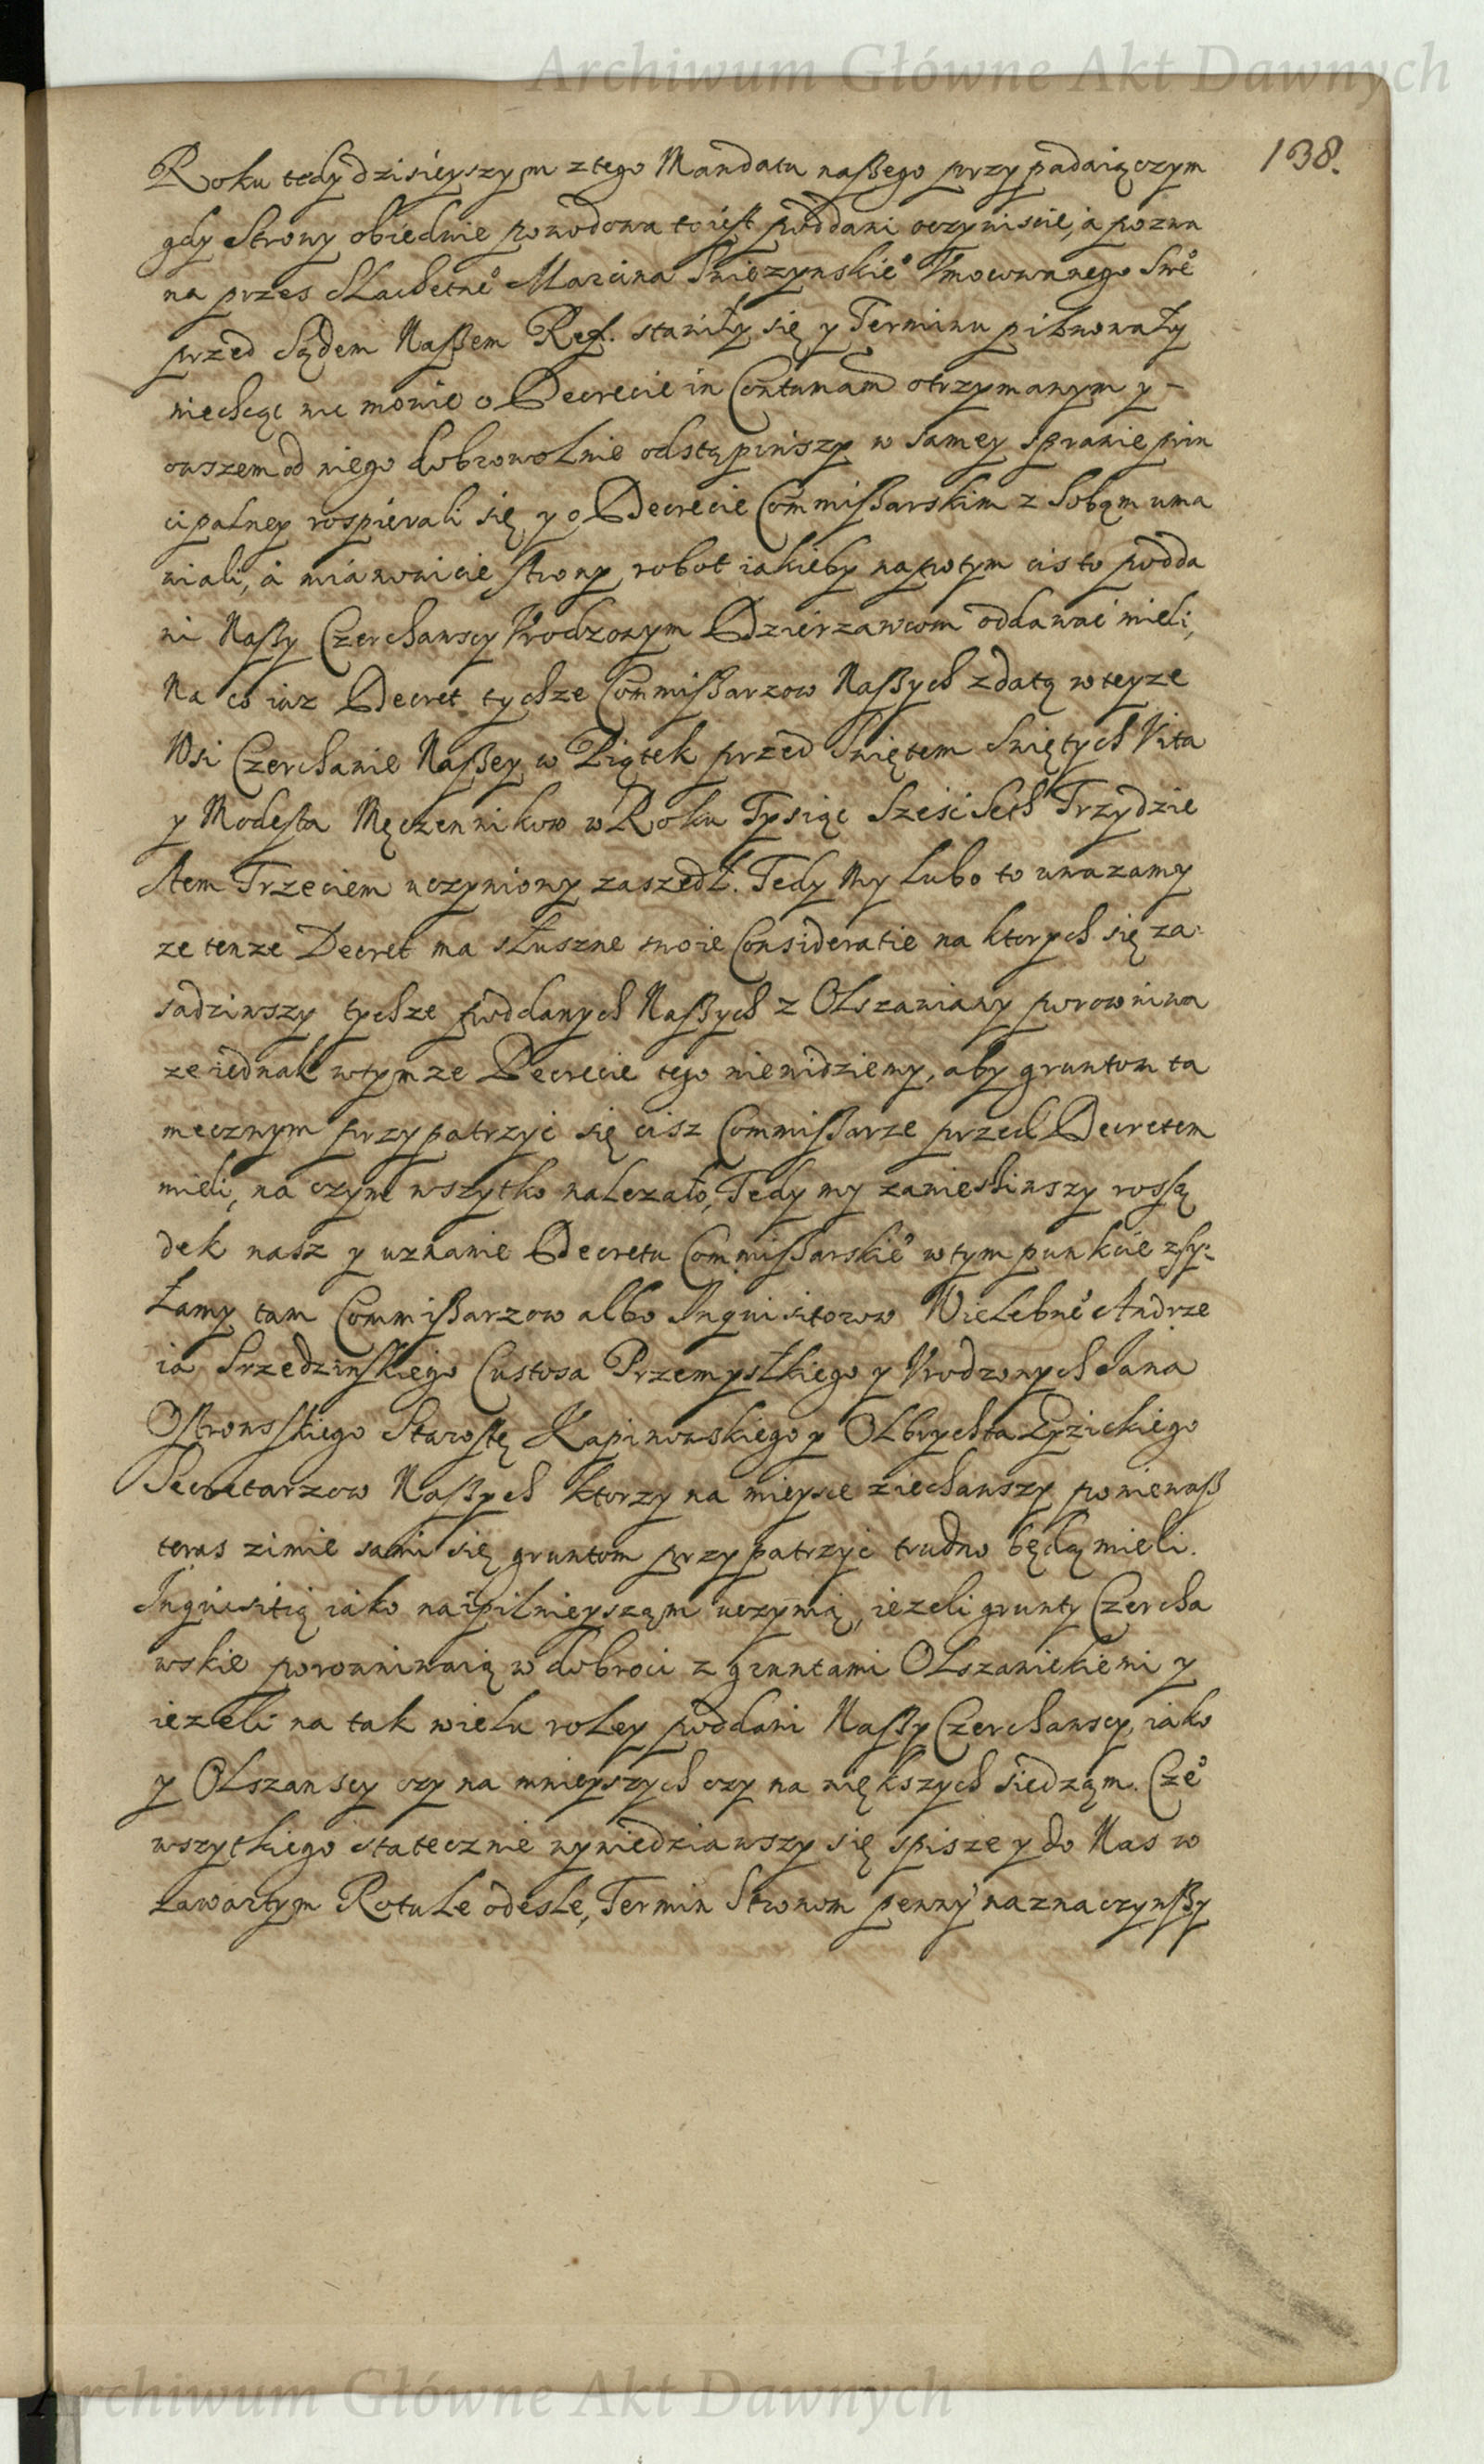 Archiwum Główne Akt Dawnych
138.
Roku tedy dzisieyszym z tego Mandatu naßego przypadaiączym
gdy Strony obiedwie powodowa to iest poddani oczywiscie, a pozwa
na przes Slachetneº Marcina Swięzynskieº Vmocowanego Sweº
przed Sądem Naßem Ref. stawiły się y Terminu pilnowały
niechcąc nic mowic o Decrecie in Contumam otrzymanym y -
owszem od niego dobrowolnie odstąpiwszy w samey sprawie prin
cipalney rospierali się y o Decrecie Commißarskim z Sobąm uma
wiali, a mianowicie strony robot iakieby napotym cisto podda
ni Naßy Czerchawscy Vrodzonym Dzierzawcom oddawać mieli,
Na co iuz Decret tychze Commißarzow Naßych z datą w teyze
Wsi Czerchawie Naßey w Piątek przed Swiętem Swiętych Vita
y Modesta Męczennikow w Roku Tysiąc Sześć Seth Trzydzie
stem Trzeciem uczyniony zaszedł. Tedy My lubo to uwazamy
ze tenze Decret ma słuszne swoie Consideratie na ktorych się za
sadziwszy tychze poddanych Naßych z Olszaniany porowniwa
ze iednak w tymze Decrecie tego niewidziemy, aby gruntom ta
mecznym przypatrzyć się cisz Commißarze przed Decretem
mieli, na czym wszytko nalezało, Tedy my zawiesiwszy rossą
dek nasz y uznanie Decretu Commißarskieº w tym punkcie zsy:
łamy tam Commißarzow albo Inquisitorow Wielebneº Andrze
ia Srzedzinskiego Custosa Przemyslkiego y Vrodzonych Jana
Ostrowsskiego Starostę Kapinowskiego y Olbrychta Łyzickiego
Secretarzow Naßych ktorzy na mieysce ziechawszy poniewaß
teras zimie sami się gruntom przypatrzyć trudno będą mieli.
Inquisitią iako naipilnieyszą̨m uczynią, iezeli grunty Czercha
wskie porowniwaią w dobroci z gruntami Olszanickiemi y
iezeli na tak wielu roley poddani Naßy Czerchawscy, iako
y Olszanscy czy na mnieyszych czy na większych siedząm. Czeº
wszytkiego statecznie wywiedziawszy się spisze y do Nas w
zawartym Rotule odesle, Termin Stronom pewny naznaczywßy
Archiwum Główne Akt Dawnych